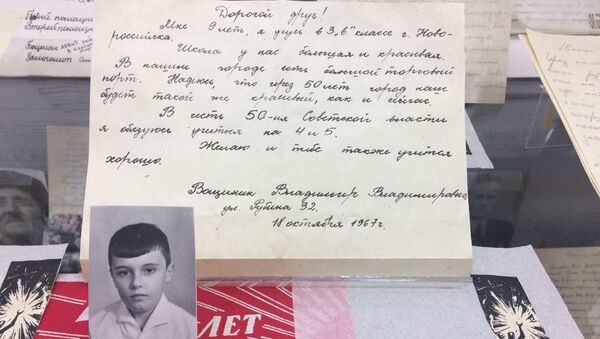 Дорогой друг!
Мне 9 лет, я учусь в 3 „б" классе г. Ново-
российска.
Школа у нас большая и красивая.
В нашем городе есть большой торговый
порт. Надеюсь, что через 50 лет город наш
будет такой же красивый, как и сейчас.
В честь 50-ия Советской власти
я обязуюсь учится на 4 и 5.
Желаю и тебе также учится
хорошо.
Ващиник Владимир Владимирович
ул. Рубина 32.
18 октября 1967 г.
ЛЕТ